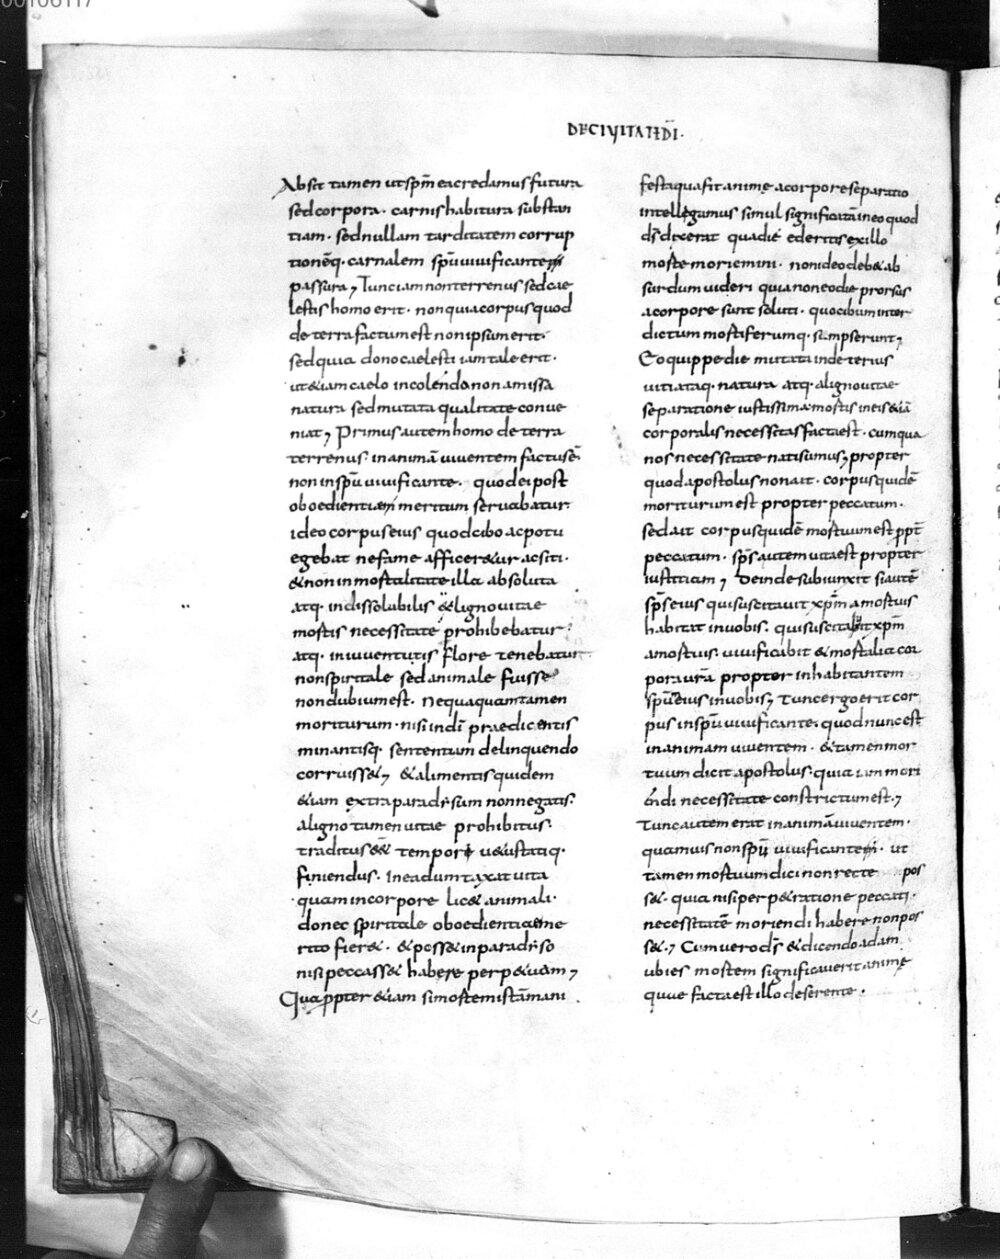 00106117
DECIVITATE DĪ.
Absit tamen ut spm̄ ea credamus futura
sed corpora. carnis habitura substan
tiam. sed nullam tarditatem corrup
tionēq. carnalem spū uiuificante
passura, Tunc iam non terrenus sed cae
lestis homo erit. non quia corpus quod
de terra factum est non ipsum erit.
sed quia dono caelesti iam tale erit.
ut &iam caelo incolendo non amissa
natura sed mutata qualitate conue
niat, Primus autem homo de terra
terrenus. in animā uiuentem factus ē.
non in spū uiuificante. quod ei post
oboedientiae meritum seruabatur.
ideo corpus eius quod cibo ac potu
egebat ne fame afficer&ur ac siti.
& non inmortalitate illa absoluta
atq. indissolubilis & ligno uitae
mortis necessitate prohibebatur.
atq. in iuuentutis flore tenebatur
non spiritale sed animale fuisse
non dubium est. Nequaquam tamen
moriturum. nisi in dī praedicentis
minantisq. sententiam delinquendo
corruiss&, & alimentis quidem
&iam extra paradisum non negatis.
a ligno tamen uitae prohibitus.
traditus ess& tempori u&ustatiq.
finiendus. in ea dumtaxat uita
quam in corpore lic& animali.
donec spiritale oboedientiae me
rito fier&. & poss& in paradiso
nisi peccass& habere perp&uam,
Quapropter &iam si mortem istam mani
festa qua fit animę a corpore separatio
intellegamus simul significatā in eo quod
ds̄ dixerat qua die ederitis ex illo
morte moriemini. non ideo deb& ab
surdum uideri quia non eo die prorsus
a corpore sunt soluti. quo cibum inter
dictum mortiferumq. sumpserunt,
Eo quippe die mutata in deterius
uitiataq. natura atq. a ligno uitae
separatione iustissima mortis in eis &iā
corporalis necessitas facta est. cum qua
nos necessitate nati sumus, propter
quod apostolus non ait. corpus quidē
moriturum est propter peccatum.
sed ait corpus quidē mortuum est ppt̄
peccatum. sps̄ autem uita est propter
iustitiam, Deinde subiunxit si autē
sps̄ eius qui suscitauit xpm̄ a mortuis
habitat in uobis. qui suscitabit xpm̄
a mortuis. uiuificabit & mortalia cor
pora urā propter inhabitantem
spū eius in uobis, Tunc ergo erit cor
pus in spū uiuificante. quod nunc est
in animam uiuentem. & tamen mor
tuum dicit apostolus. quia iam mori
endi necessitate constrictum est,
Tunc autem erat in animā uiuentem.
quamuis non spū uiuificante. ut
tamen mortuum dici non recte pos
s&. quia nisi perp&ratione peccati.
necessitatē moriendi habere non pos
s&., Cum uero ds̄ & dicendo adam
ubi es mortem significauerit animę
quae facta est illo deserente.